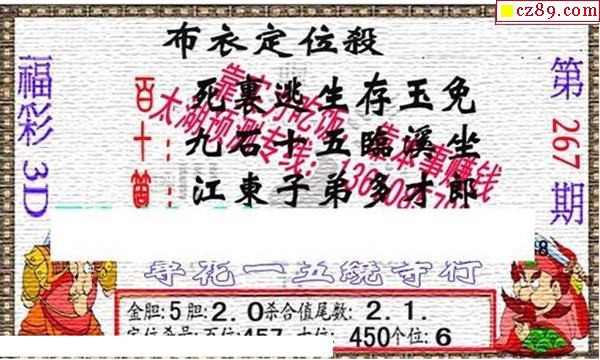 cz89.com
布衣定位殺
福彩3D
第267期
百: 死裏逃生存玉免
十: 九石十五臨溪坐
箇: 江東子弟多才郎
靠实力吃饭 靠本事赚钱
太湖预测专线:
8
尋花一五繞寺行
金胆:5胆:2.0杀合值尾数:2.1.
定位杀号:百位:457 十位:450个位:6